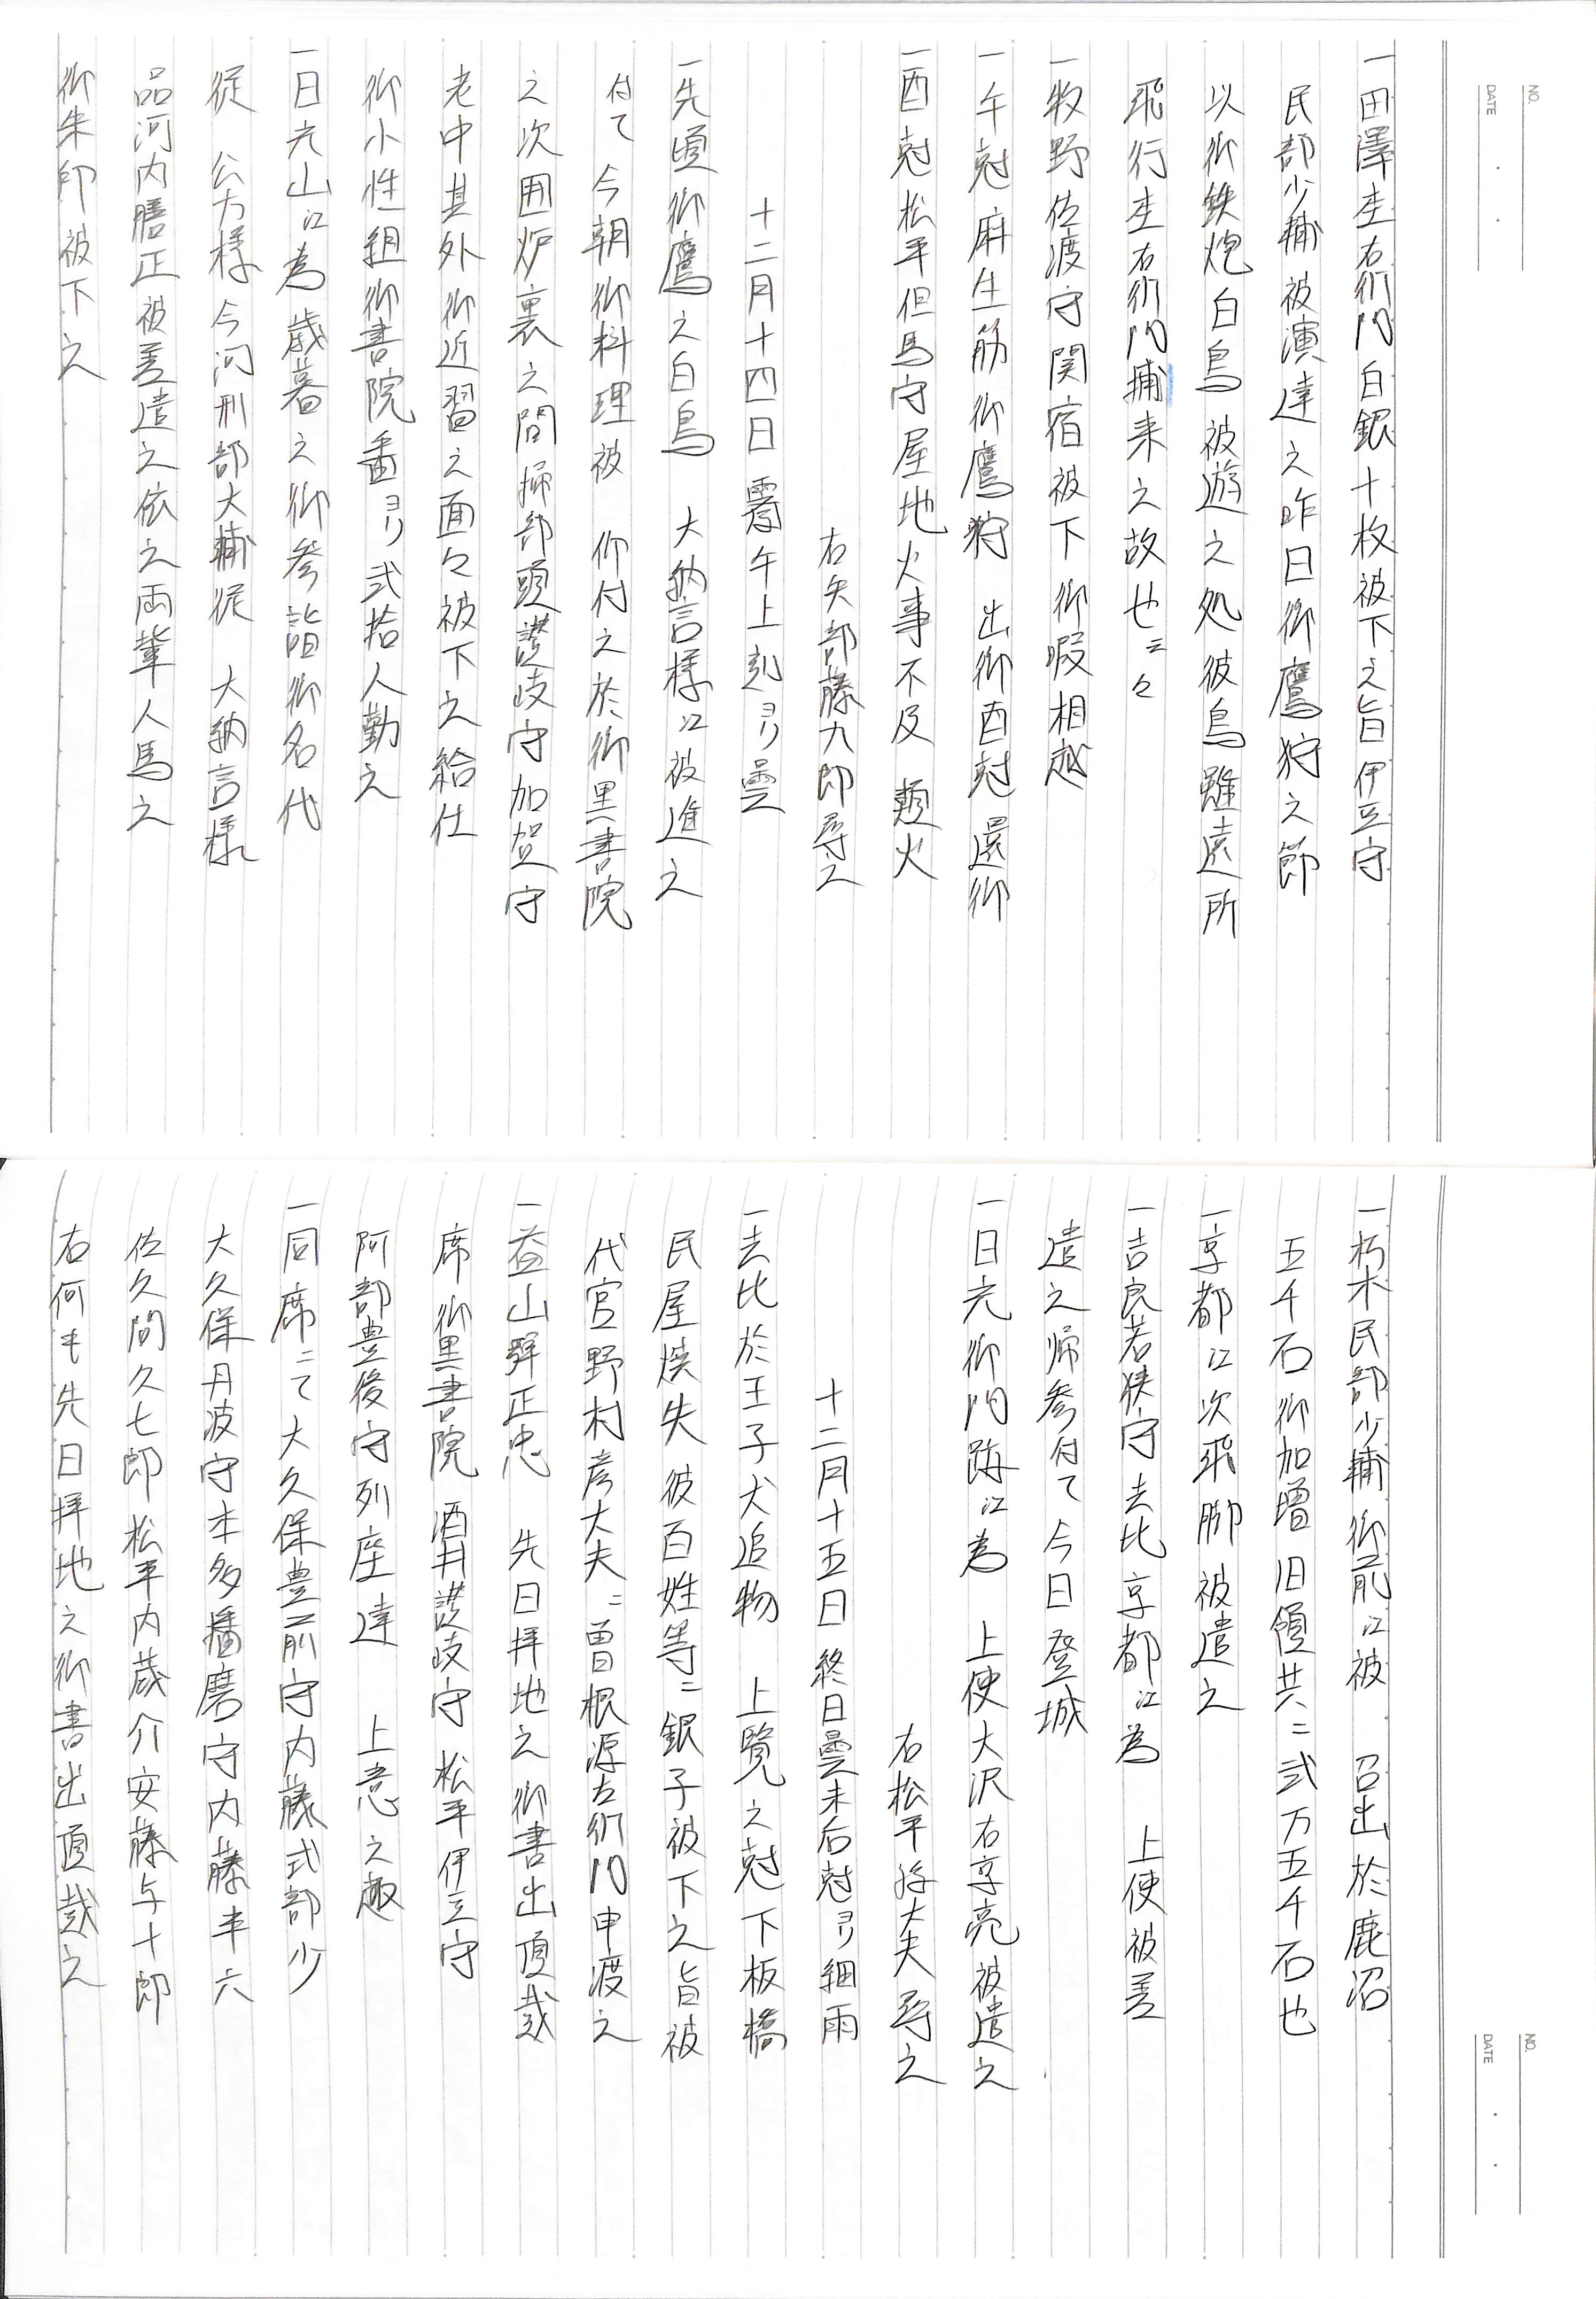 NO.
DATE
一田澤杢右衛門白銀十枚被下之旨伊豆守
民部少輔被演達之昨日御鷹狩之節
以御鉄炮白鳥被遊之処彼鳥雖遠所
飛行杢右衛門捕来之故也云々
一牧野佐渡守関宿被下御暇相越
一午尅麻生筋御鷹狩 出御酉尅還御
一酉尅松平但馬守屋地火事不及 類火
右矢部藤九郎尋之
十二月十四日 霽午上刻ヨリ曇
一先頃御鷹之白鳥 大納言様江被進之
付て今朝御料理被 仰付之於御黒書院
之次囲炉裏之間掃部頭讃岐守加賀守
老中其外御近習之面々被下之給仕
御小性組御書院番ヨリ弐拾人勤之
一日光山江為歳暮之御参詣御名代
従 公方様今河刑部大輔従 大納言様
品河内膳正被差遣之依之両輩人馬之
御朱印被下之
NO.
DATE
一朽木民部少輔御前江被 召出於鹿沼
五千石御加増旧領共ニ弐万五千石也
一京都江次飛脚被遣之
一吉良若狭守去比京都江為 上使被差
遣之帰参付て今日登城
一日光御門跡江為 上使大沢右京亮被遣之
右松平孫大夫尋之
十二月十五日 終日曇未后尅ヨリ細雨
一去比於王子犬追物 上覧之尅下板橋
民屋焼失彼百姓等ニ銀子被下之旨被
代官野村彦大夫ニ曽根源左衛門申渡之
一益山弾正忠 先日拝地之御書出頂戴
席御黒書院 酒井讃岐守 松平伊豆守
阿部豊後守列座達 上意之趣
一同席ニて大久保豊前守内藤式部少
大久保丹波守本多播磨守内藤半六
佐久間久七郎松平内蔵介安藤与十郎
右何も先日拝地之御書出頂戴之